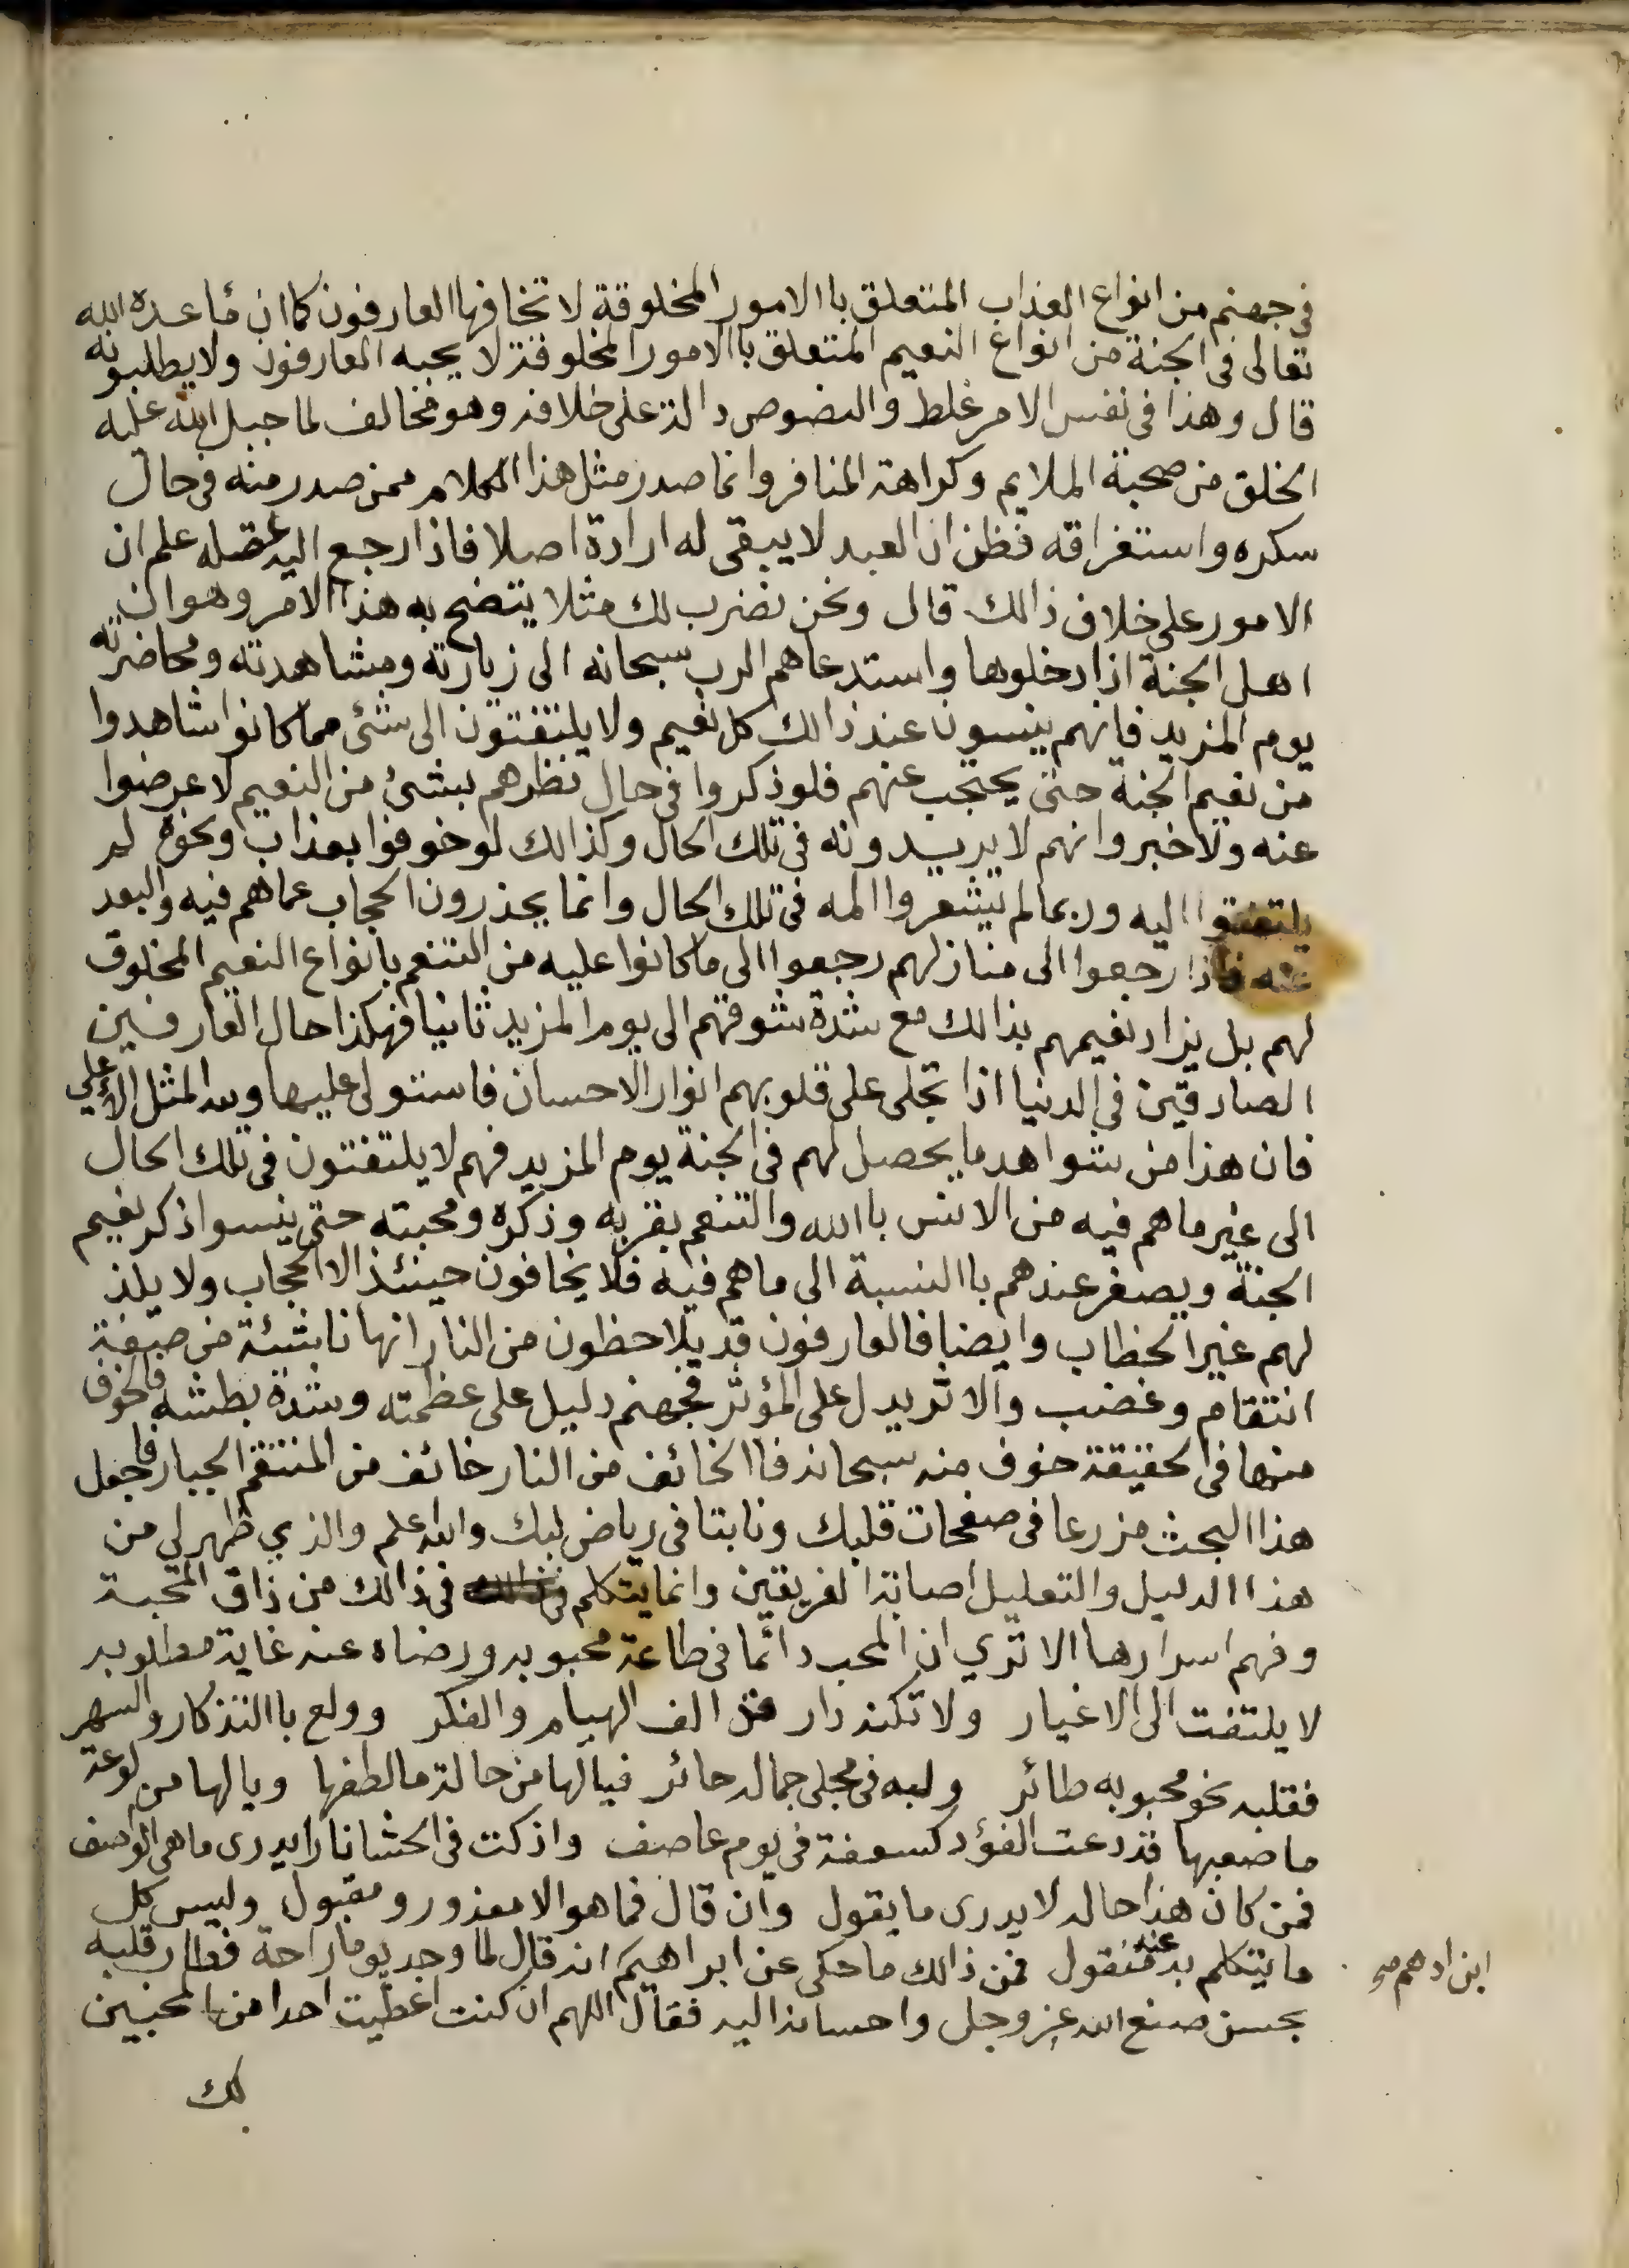 في جهنم من انواع العذاب المتعلق باالامور المخلوقة لا تخافها العارفون كما ان ما عده الله
تعالى فى الجنة من انواع النعيم المتعلق باالامور المخلوقة لا يحبه العارفون ولا يطلبونه
قال وهذا فى نفس الامر غلط والنصوص دالة على خلافه وهو مخالف لما جبل الله عليه
الخلق من صحبة الملايم وكراهة المنافر وانما صدر مثل هذا الكلام ممن صدر منه فى حال
سكره واستغراقه فظن ان العبد لا يبقى له ارادة اصلا فاذا رجع اليه عقله علم ان
الامور على خلاف ذالك قال ونحن نضرب لك مثلا يتضح به هذا الامر وهو ان
اهل الجنة اذا دخلوها واستدعاهم الرب سبحانه الى زيارته ومشاهدته ومحاضرته
يوم المزيد فانهم ينسون عند ذالك كل نعيم ولا يلتفتون الى شئ مما كانوا شاهدوا
من نعيم الجنة حتى يحتجب عنهم فلو ذكروا فى حال نظرهم بشئ من النعيم لاعرضوا
عنه ولاخبروا انهم لا يريدونه فى تلك الحال وكذالك لو خوفوا بعذاب ونحوه لم
يلتفتوا اليه وربما لم يشعروا المه فى تلك الحال وانما يحذرون الحجاب عما هم فيه والبعد
عنه فاذا رجعوا الى منازلهم رجعوا الى ما كانوا عليه من التنعم بانواع النعيم المخلوق
لهم بل يزاد نعيمهم بذالك مع شدة شوقهم الى يوم المزيد ثانيا فهكذا حال العارفين
الصادقين في الدنيا اذا تجلى على قلوبهم انوار الاحسان فاستولى عليها ولله المثل الاعلي
فان هذا من شواهد ما يحصل لهم فى الجنة يوم المزيد فهم لا يلتفتون فى تلك الحال
الى غير ما هم فيه من الانس باالله والتنعم بقربه وذكره ومحبته حتى ينسوا ذكر نعيم
الجنة ويصغر عندهم باالنسبة الى ما هم فيه فلا يخافون حينئذ الا الحجاب ولا يلذ
لهم غير الخطاب وايضا فالعارفون قد يلاحظون من النار انها ناشئة من صفة
انتقام وغضب والاثر يدل على المؤثر فجهنم دليل على عظمته وشدة بطشه فالخوف
منها فى الحقيقة خوف منه سبحانه فاالخائف من النار خائف من المنتقم الجبار فاجعل
هذا البحث مزرعا فى صفحات قلبك ونابتا في رياض لبك والله اعلم والذي ظهر لي من
هذا الدليل والتعليل اصابة الفريقين وانما يتكلم فى ذالك من ذاق المحبة
وفهم اسرارها الا تري ان المحب دائما فى طاعة محبوبه ورضاه عنه غاية مطلوبه
لا يلتفت الى الاغيار ولا تكنه دار الف الهيام والفكر وولع باالتذكار والسهر
فقلبه نحو محبوبه طائر ولبه في مجلى جماله حائر فيالها من حالة ما لطفها ويالها من لوعة
ما صعبها قد دعت الفؤد كسعفة فى يوم عاصف واذكت فى الحشا نارا يدرى ما هى الواصف
فمن كان هذا حاله لا يدرى ما يقول وان قال فما هو الا معذور ومقبول وليس كل
ما يتكلم به عنه منقول فمن ذالك ما حكى عن ابراهيم انه قال لما وجد يوما راحة فطار قلبه
ابن ادهم صح
بحسن صنع الله عز وجل واحسانه اليه فقال اللهم ان كنت اعطيت احدا من المحبين
لك